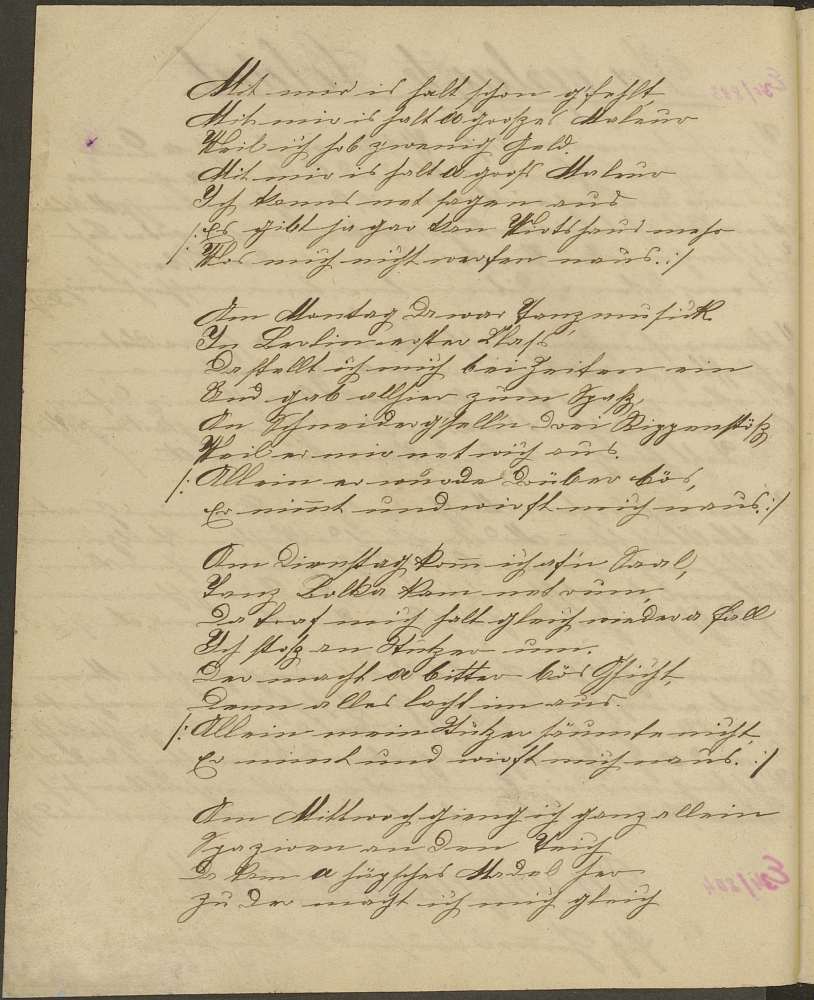 Mit mir is halt schon g'fehlt,
Mit mir is halt a großes Maleur
Weil ich hob zwenig Geld.
Mit mir is halt a groß Maleur
Ich kanns net sagen aus
/: Es gibt ja gar kan Wirtshaus mehr
Wos mich nicht werfen naus. :/
Am Montag da war Tanzmusick
In Berlin erster Klass,
Da stellt ich mich bei Zeiten ein
Und gab allhier zum Spaß,
An Schneidergsell'n drei Rippenstöß,
Weil er mir net wich aus.
/: Allein er wurde drüber bös,
Er nimt und wirft mich naus. :/
Am Dienstag kom ich af'n Saal,
Tanz Bolka kam net rum,
Da traf mich halt gleich wieder a Fall
Ich stoß an Stutzer um.
Der macht a bitter bös Gsicht,
Denn alles lacht im aus.
/: Allein mein Stutzer säumte nicht,
Er nimt und wirft mich naus. :/
Am Mittwoch gieng ich ganz allein
Spaziren an den Teich
Da kam a hüpsches Madel her
Zu der macht ich mich gleich